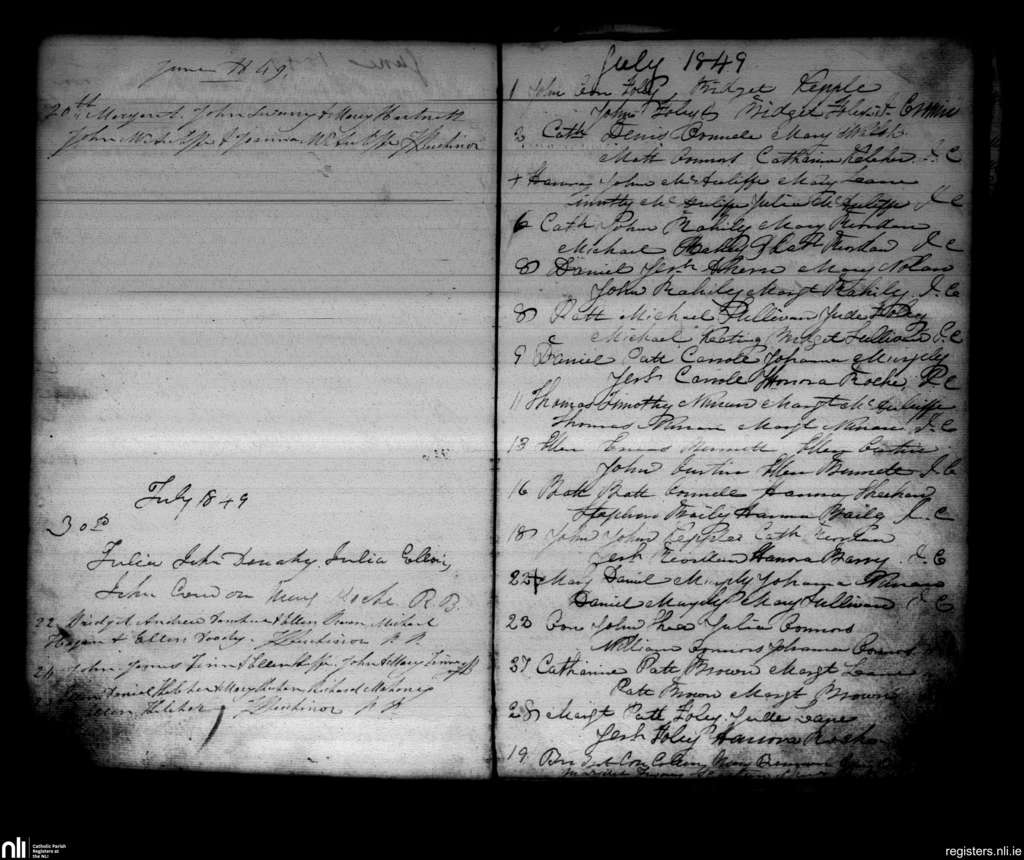 June 1849.
20th Margaret. John Sweeny & Mary Hartnett
John McAuliffe & Joanna McAuliffe
July 1849
30th
Julia John Donohy. Julia
John Condon Mary Roche. R.B.
22. Bridget Andrew & Ellen Michael
& Ellen R R.
24 John. James & Ellen John & Mary
Daniel Kelcher & Mary Richard Mahony
Ellen Kelcher R R.
July 1849.
1 John Con Foley, Bridget Kepple
John Foley & Bridget
2 Cath Denis Connele Mary Walsh.
Matt Connors Catharine Kelcher J. C
+ Hannay John McAuliffe Mary Leane
McAuliffe Julia McAuliffe J C
6 Cath John Rahily Mary Riordan
Michael & Cath Riordan J. C
8 Daniel Jerh Ahern Mary Nolan
John Rahily Margt Rahily. J. C
8 Patt Michael Sullivan Jude Foley
Michael Keating Bridget Sullivan J. C
9 Daniel Patt Carrole Johanna Murphy
Jerh Carrole Honora Roche, J. C
11 Thomas Timothy Nunan Margt McAuliffe
Thomas Nunan Margt Nunan J. C
13 Ellen Bennett Ellen Curtin
John Curtin Ellen Bennett J. C
16 Batt Batt Connele Hannay Sheehan
Stephen Hanora J. C
18 John John Kepple Cath Riordan
Jerh Riordan Hanora Barry. J. C
22 Mary Daniel Murphy Johanna Nunan
Daniel Murphy Mary Sullivan J C
23 Con John Shea Julia Connors
William Connors Johanna Connors
27 Catharine Patt Brown Margt Leane
Patt Brown Margt Brown
28 Margt Patt Foley. Jude
Jerh Foley Hanora Roche
19 Con Mary
nli
Catholic Parish
Registers at
the NLI
registers.nli.ie